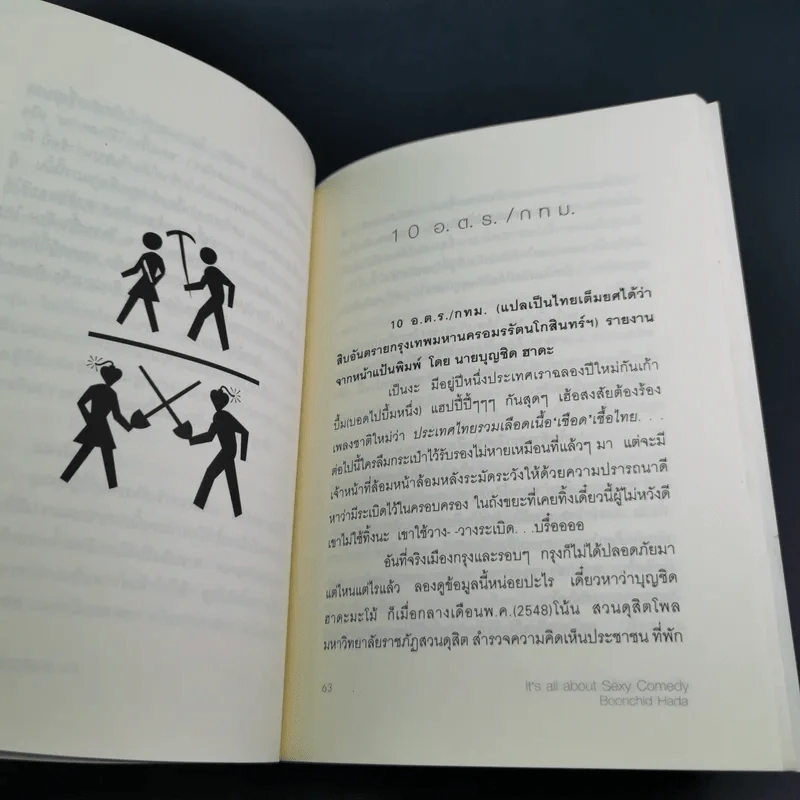 10 อ.ต.ร./กทม.
10 อ.ต.ร./กทม. (แปลเป็นไทยเต็มยศได้ว่า
สิบอันตรายกรุงเทพมหานครอมรรัตนโกสินทร์ฯ) รายงาน
จากหน้าแป้นพิมพ์ โดย นายบุญชิด ฮาดะ
เป็นงะ มีอยู่ปีหนึ่งประเทศเราฉลองปีใหม่กันเก้า
บึ้ม(บอดไปบึ้มหนึ่ง) แฮปปี้ปี้ๆๆๆ กันสุดๆ เฮ้อสงสัยต้องร้อง
เพลงชาติใหม่ว่า ประเทศไทยรวมเลือดเนื้อ"เชือด"เชื้อไทย. . .
ต่อไปนี้ใครลืมกระเป๋าไว้รับรองไม่หายเหมือนที่แล้วๆ มา แต่จะมี
เจ้าหน้าที่ล้อมหน้าล้อมหลังระมัดระวังให้ด้วยความปรารถนาดี
หาว่ามีระเบิดไว้ในครอบครอง ในถังขยะที่เคยทิ้งเดี๋ยวนี้ผู้ไม่หวังดี
เขาไม่ใช้ทิ้งนะ เขาใช้วาง- -วางระเบิด. . .บรื๋ออออ
อันที่จริงเมืองกรุงและรอบๆ กรุงก็ไม่ได้ปลอดภัยมา
แต่ไหนแต่ไรแล้ว ลองดูข้อมูลนี้หน่อยปะไร เดี๋ยวหาว่าบุญชิด
ฮาดะมะโม้ ก็เมื่อกลางเดือนพ.ค.(2548)โน้น สวนดุสิตโพล
มหาวิทยาลัยราชภัฏสวนดุสิต สำรวจความคิดเห็นประชาชน ที่พัก
63
It's all about Sexy Comedy
Boonchid Hada